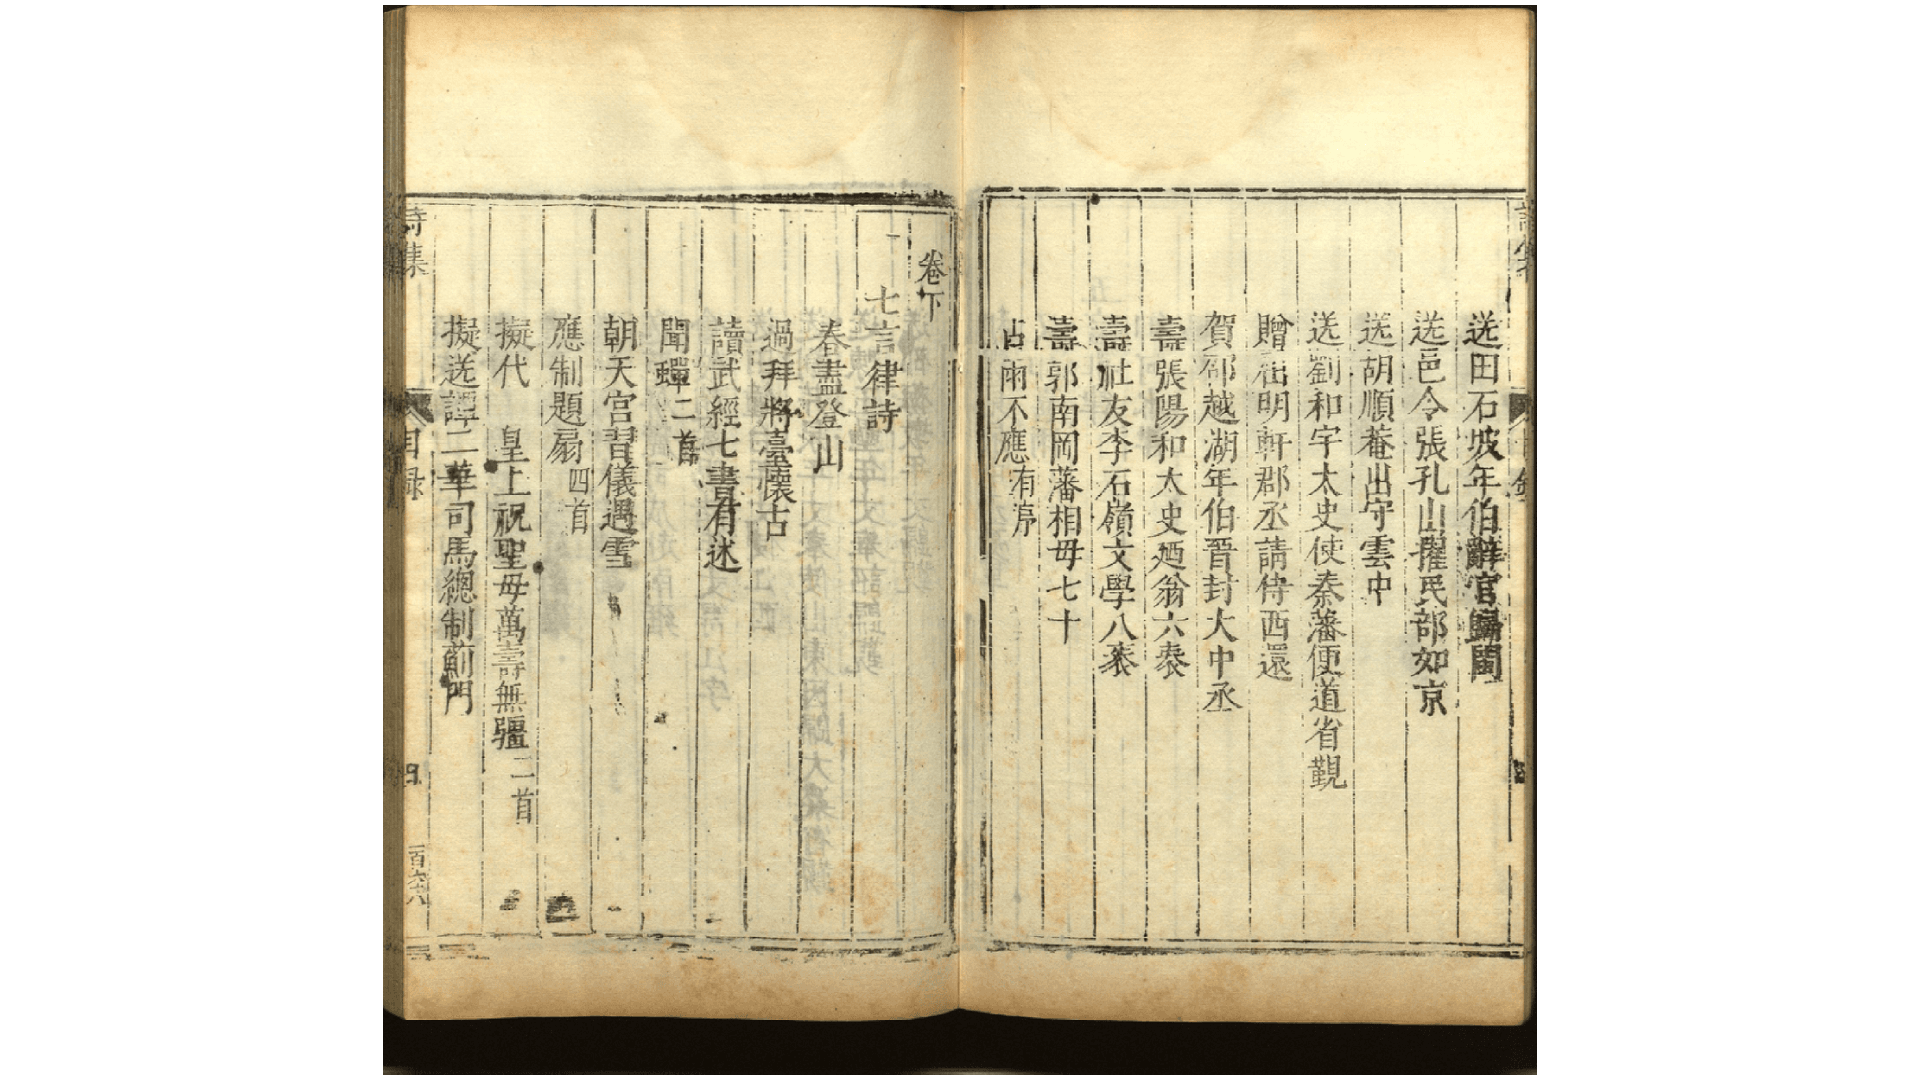 送田石坡年伯辭官歸閩
送邑令張孔山擢民部如京
送胡順菴出守雲中
送劉和宇太史使秦藩便道省覲
贈崔明軒郡丞請侍西還
賀邵越湖年伯晉封大中丞
壽張陽和太史廼翁六袠
壽社友李石嶺文學八袠
壽郭南岡藩相母七十
占雨不應有渟
卷下
七言律詩
春盡登山
過拜將臺懷古
讀武經七書有述
聞蟬二首
朝天宮習儀遇雪
應制題扇四首
擬代　皇上祝聖母萬壽無疆二首
擬送譚二華司馬總制薊門
詩集
目録
百六八